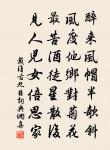 醉來風帽半欹斜
幾度他鄉對菊花
最苦酒徒星散後
見人兒女倍思家
戴復古九日